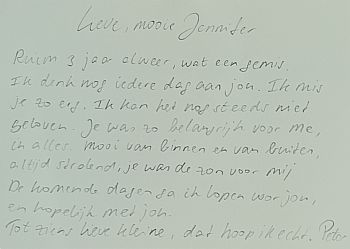 Lieve, mooie Jennifer
Ruim 3 jaar alweer, wat een gemis.
Ik denk nog iedere dag aan jou. Ik mis
je zo erg. Ik kan het nog steeds niet
geloven. Je was zo belangrijk voor me,
in alles. Mooi van binnen en van buiten,
altijd stralend, je was de zon voor mij
De komende dagen ga ik lopen voor jou,
en hopelijk met jou.
Tot ziens lieve kleine, dat hoop ik echt. Peter